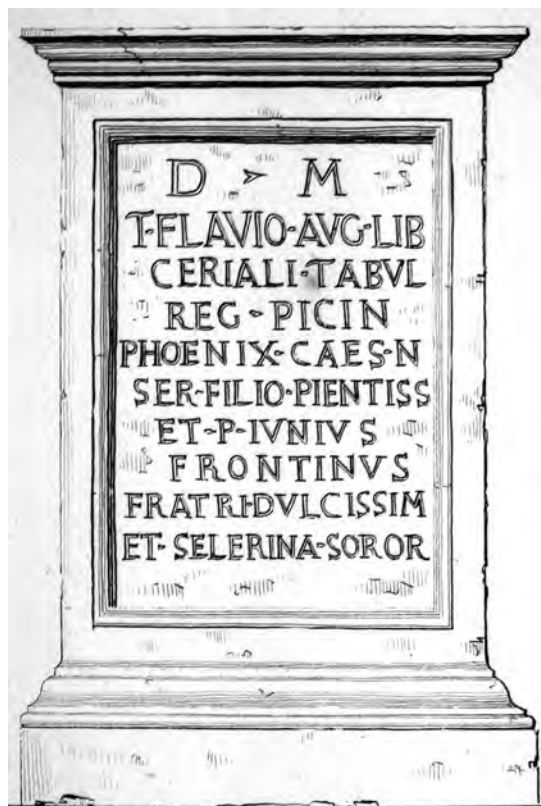 D M
T·FLAVIO·AVG·LIB
CERIALI·TABVL
REG·PICIN
PHOENIX·CAES·N
SER·FILIO·PIENTISS
ET·P·IVNIVS
FRONTINVS
FRATRI·DVLCISSIM
ET·SELERINA·SOROR